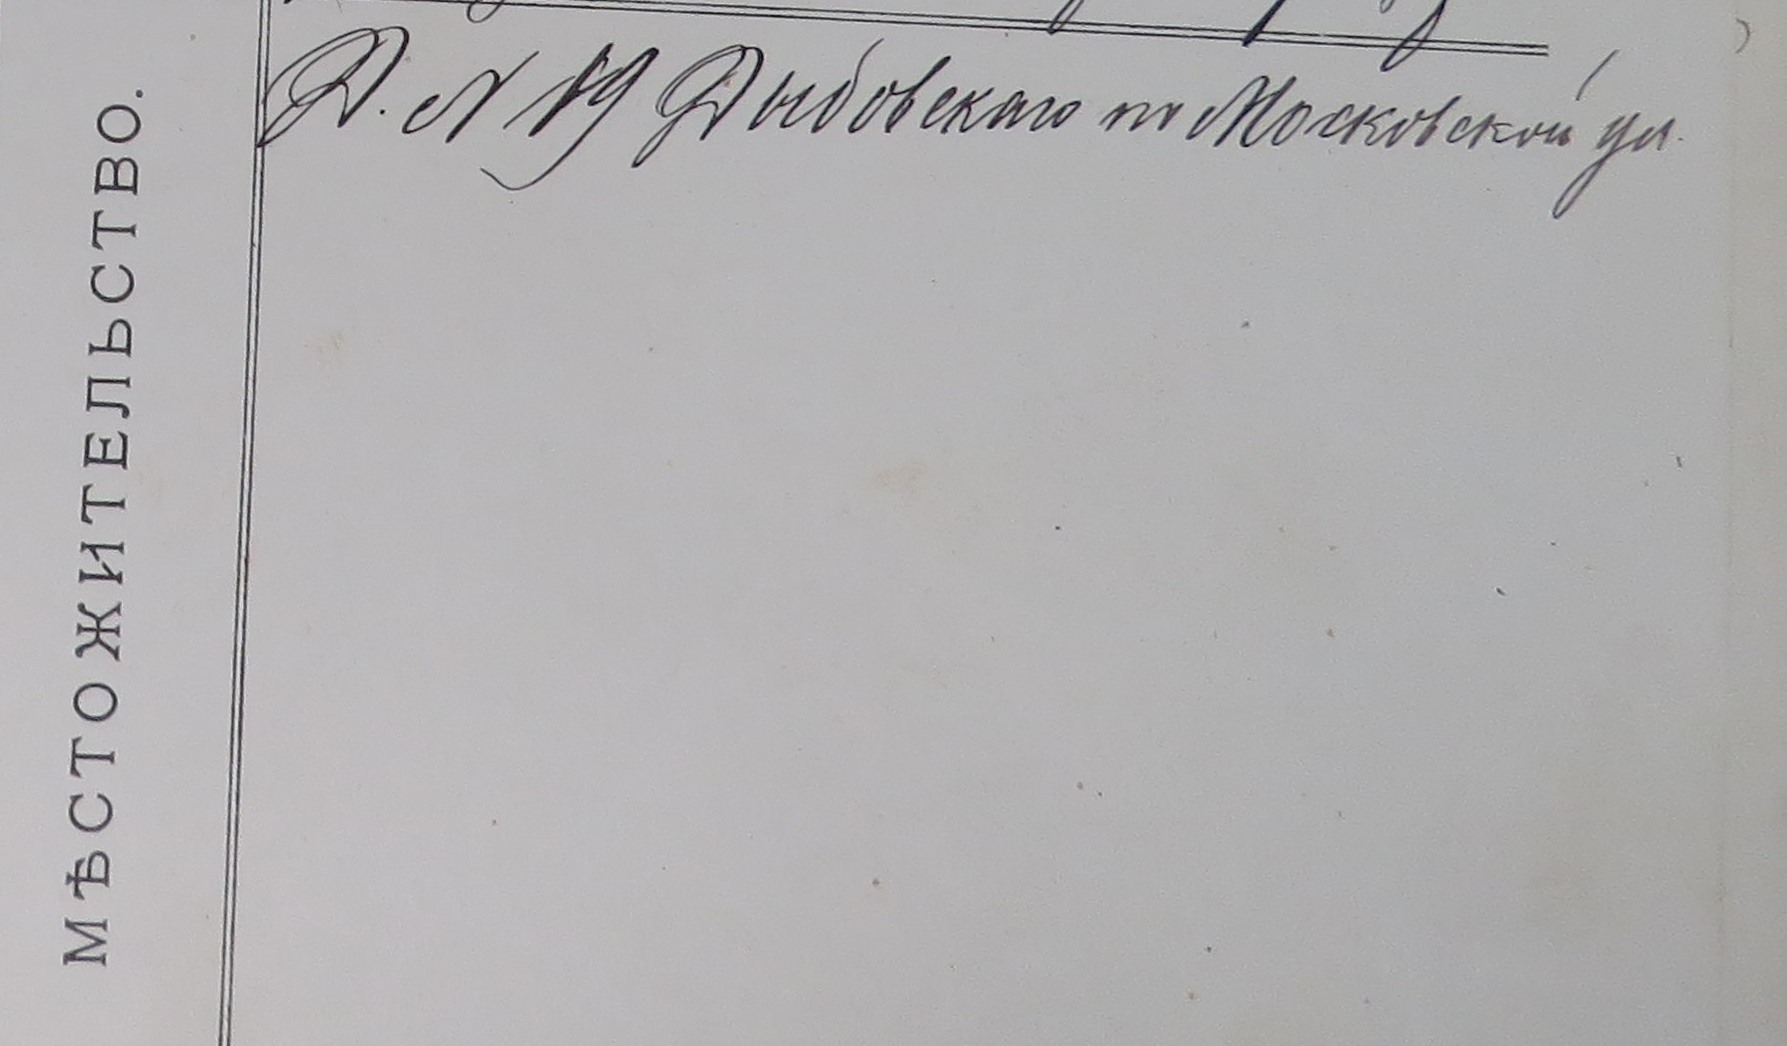 Д. № 19 Дыбовскаго по Московской ул.
МѢСТОЖИТЕЛЬСТВО.